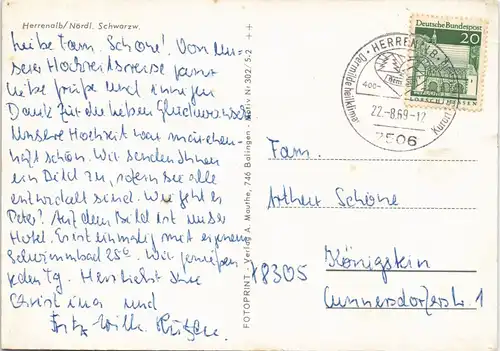 Herrenalb/Nördl. Schwarzw.
liebe Fam. Schöne! Von un-
serer Hochzeitsreise ganz
liebe Grüße und innigen
Dank für die lieben Glückwünsche
Unsere Hochzeit war märchen-
haft schön. Wir senden Ihnen
ein Bild zu, sofern sie alle
entwickelt sind. Wie geht es
Peter? Auf dem Bild ist unser
Hotel. Es ist einmalig mit eigenem
Schwimmbad 25°. Wir genießen
jeden Tg. Herzlichst Ihre
Christina und
Fritz Wilh.
FOTOPRINT - Verlag A. Mauthe, 746 Balingen - Motiv Nr 302/5-2 ++
HERRENALB
Der milde heilklima
Kurort
400-
22.-8.69-12
7506
Deutsche Bundespost
20
LORSCH/HESSEN
Fam.
Arthur Schöne
X8305 Königstein
Cunnersdorferstr. 1